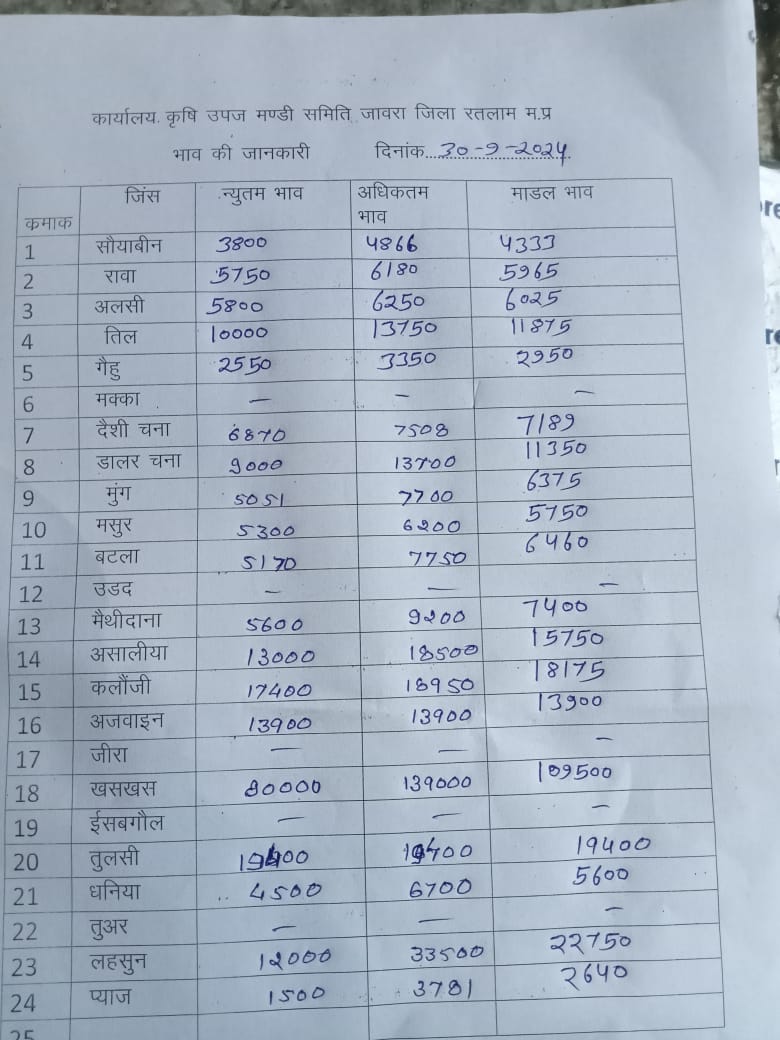 कार्यालय. कृषि उपज मण्डी समिति जावरा जिला रतलाम म.प्र
भाव की जानकारी दिनांक....30-9-2024
कमाक जिंस न्युतम भाव अधिकतम भाव माडल भाव
1 सौयाबीन 3800 4866 4333
2 रावा 5750 6180 5965
3 अलसी 5800 6250 6025
4 तिल 10000 13750 11875
5 गैहु 2550 3350 2950
6 मक्का — — —
7 दैशी चना 6870 7508 7189
8 डालर चना 9000 13700 11350
9 मुंग 5051 7700 6375
10 मसुर 5300 6200 5750
11 बटला 5170 7750 6460
12 उडद — — —
13 मैथीदाना 5600 9200 7400
14 असालीया 13000 18500 15750
15 कलौंजी 17400 18950 18175
16 अजवाइन 13900 13900 13900
17 जीरा — — —
18 खसखस 80000 139000 109500
19 ईसबगौल — — —
20 तुलसी 19400 19400 19400
21 धनिया 4500 6700 5600
22 तुअर — — —
23 लहसुन 12000 33500 22750
24 प्याज 1500 3781 2640
25